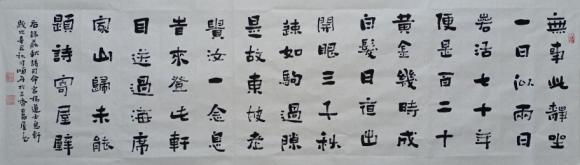 無事此靜坐
一日似兩日
若活七十年
便是百二十
黃金幾時成
白髮日夜出
開眼三千秋
速如駒過隙
是故東坡老
貴汝一念息
時來登此軒
目送過海席
家山歸未能
題詩寄屋壁
右錄蘇軾詩司命宮楊道士息軒